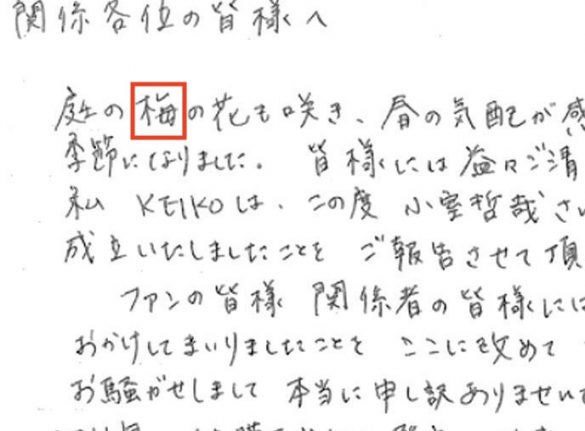 関係各位の皆様へ
庭の梅の花も咲き、春の気配が感
季節になりました。 皆様には益々ご清
私 KEIKOは、この度 小室哲哉さ
成立いたしましたことを ご報告させて頂
ファンの皆様 関係者の皆様には
おかけしてまいりましたことを ここに改めて
お騒がせしまして 本当に申し訳ありませ